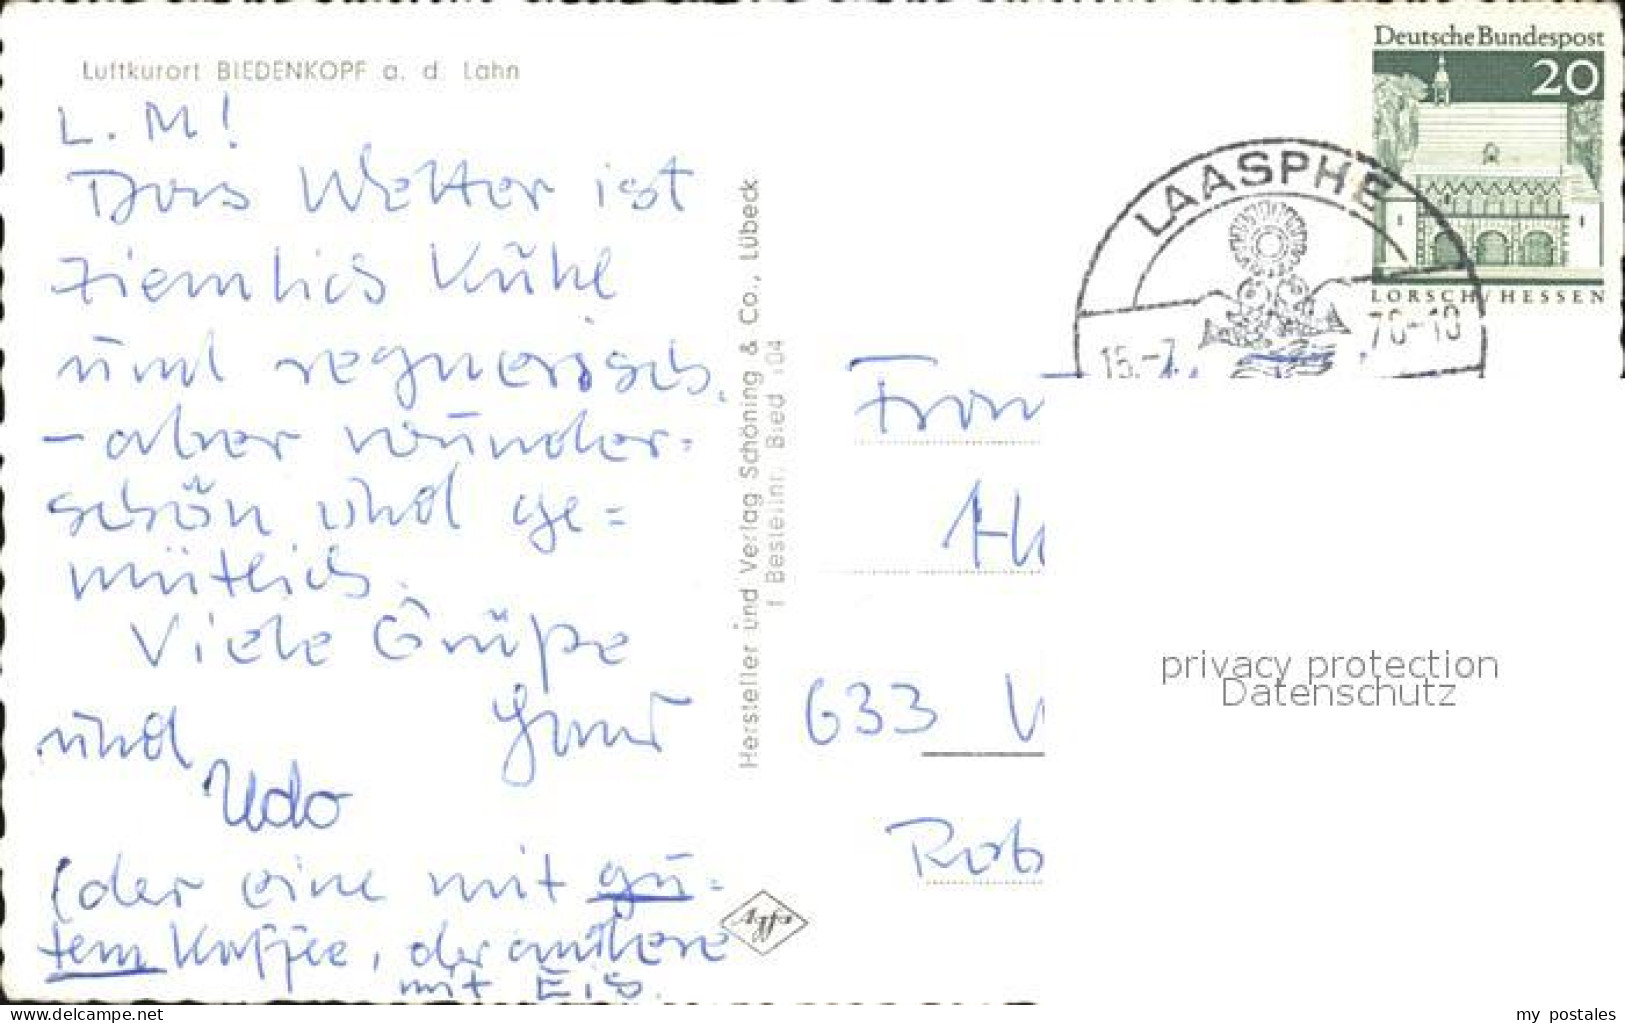 Luftkurort BIEDENKOPF a. d. Lahn
L. M!
Das Wetter ist
ziemlich kühl
und regnerisch,
- aber wunder=
schön und ge=
mütlich.
Viele Grüße
und
Udo
(der eine mit gu=
tem Kaffee, der andere
mit Eis.
Hersteller und Verlag Schöning & Co., Lübeck
Bestellnr. Bied 104
Agfa
Deutsche Bundespost
20
LORSCH/HESSEN
LAASPHE
15.-7. 70-18
633 W
Rob
privacy protection
Datenschutz
www.delcampe.net
my_postales